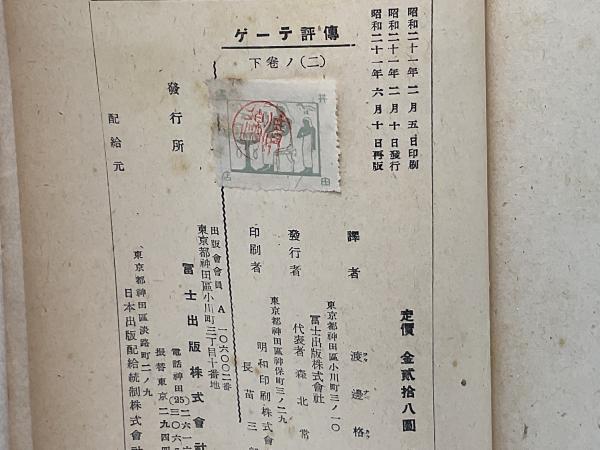 昭和二十一年二月五日印刷
昭和二十一年二月十日發行
昭和二十一年六月十日再版
ゲーテ評傳
下卷ノ(二)
定價 金貳拾八圓
譯者 渡邊格
東京都神田區小川町三ノ一〇
富士出版株式會社
發行者 代表者 森北常
東京都神田區神保町三ノ二九
明和印刷株式會
印刷者 長苗三
出版會會員 A一〇六〇〇二番
東京都神田區小川町三丁目十番地
發行所 富士出版株式會社
電話神田(25)二六一
振替東京二九四
東京都神田區淡路町二ノ九
配給元 日本出版配給統制株式會